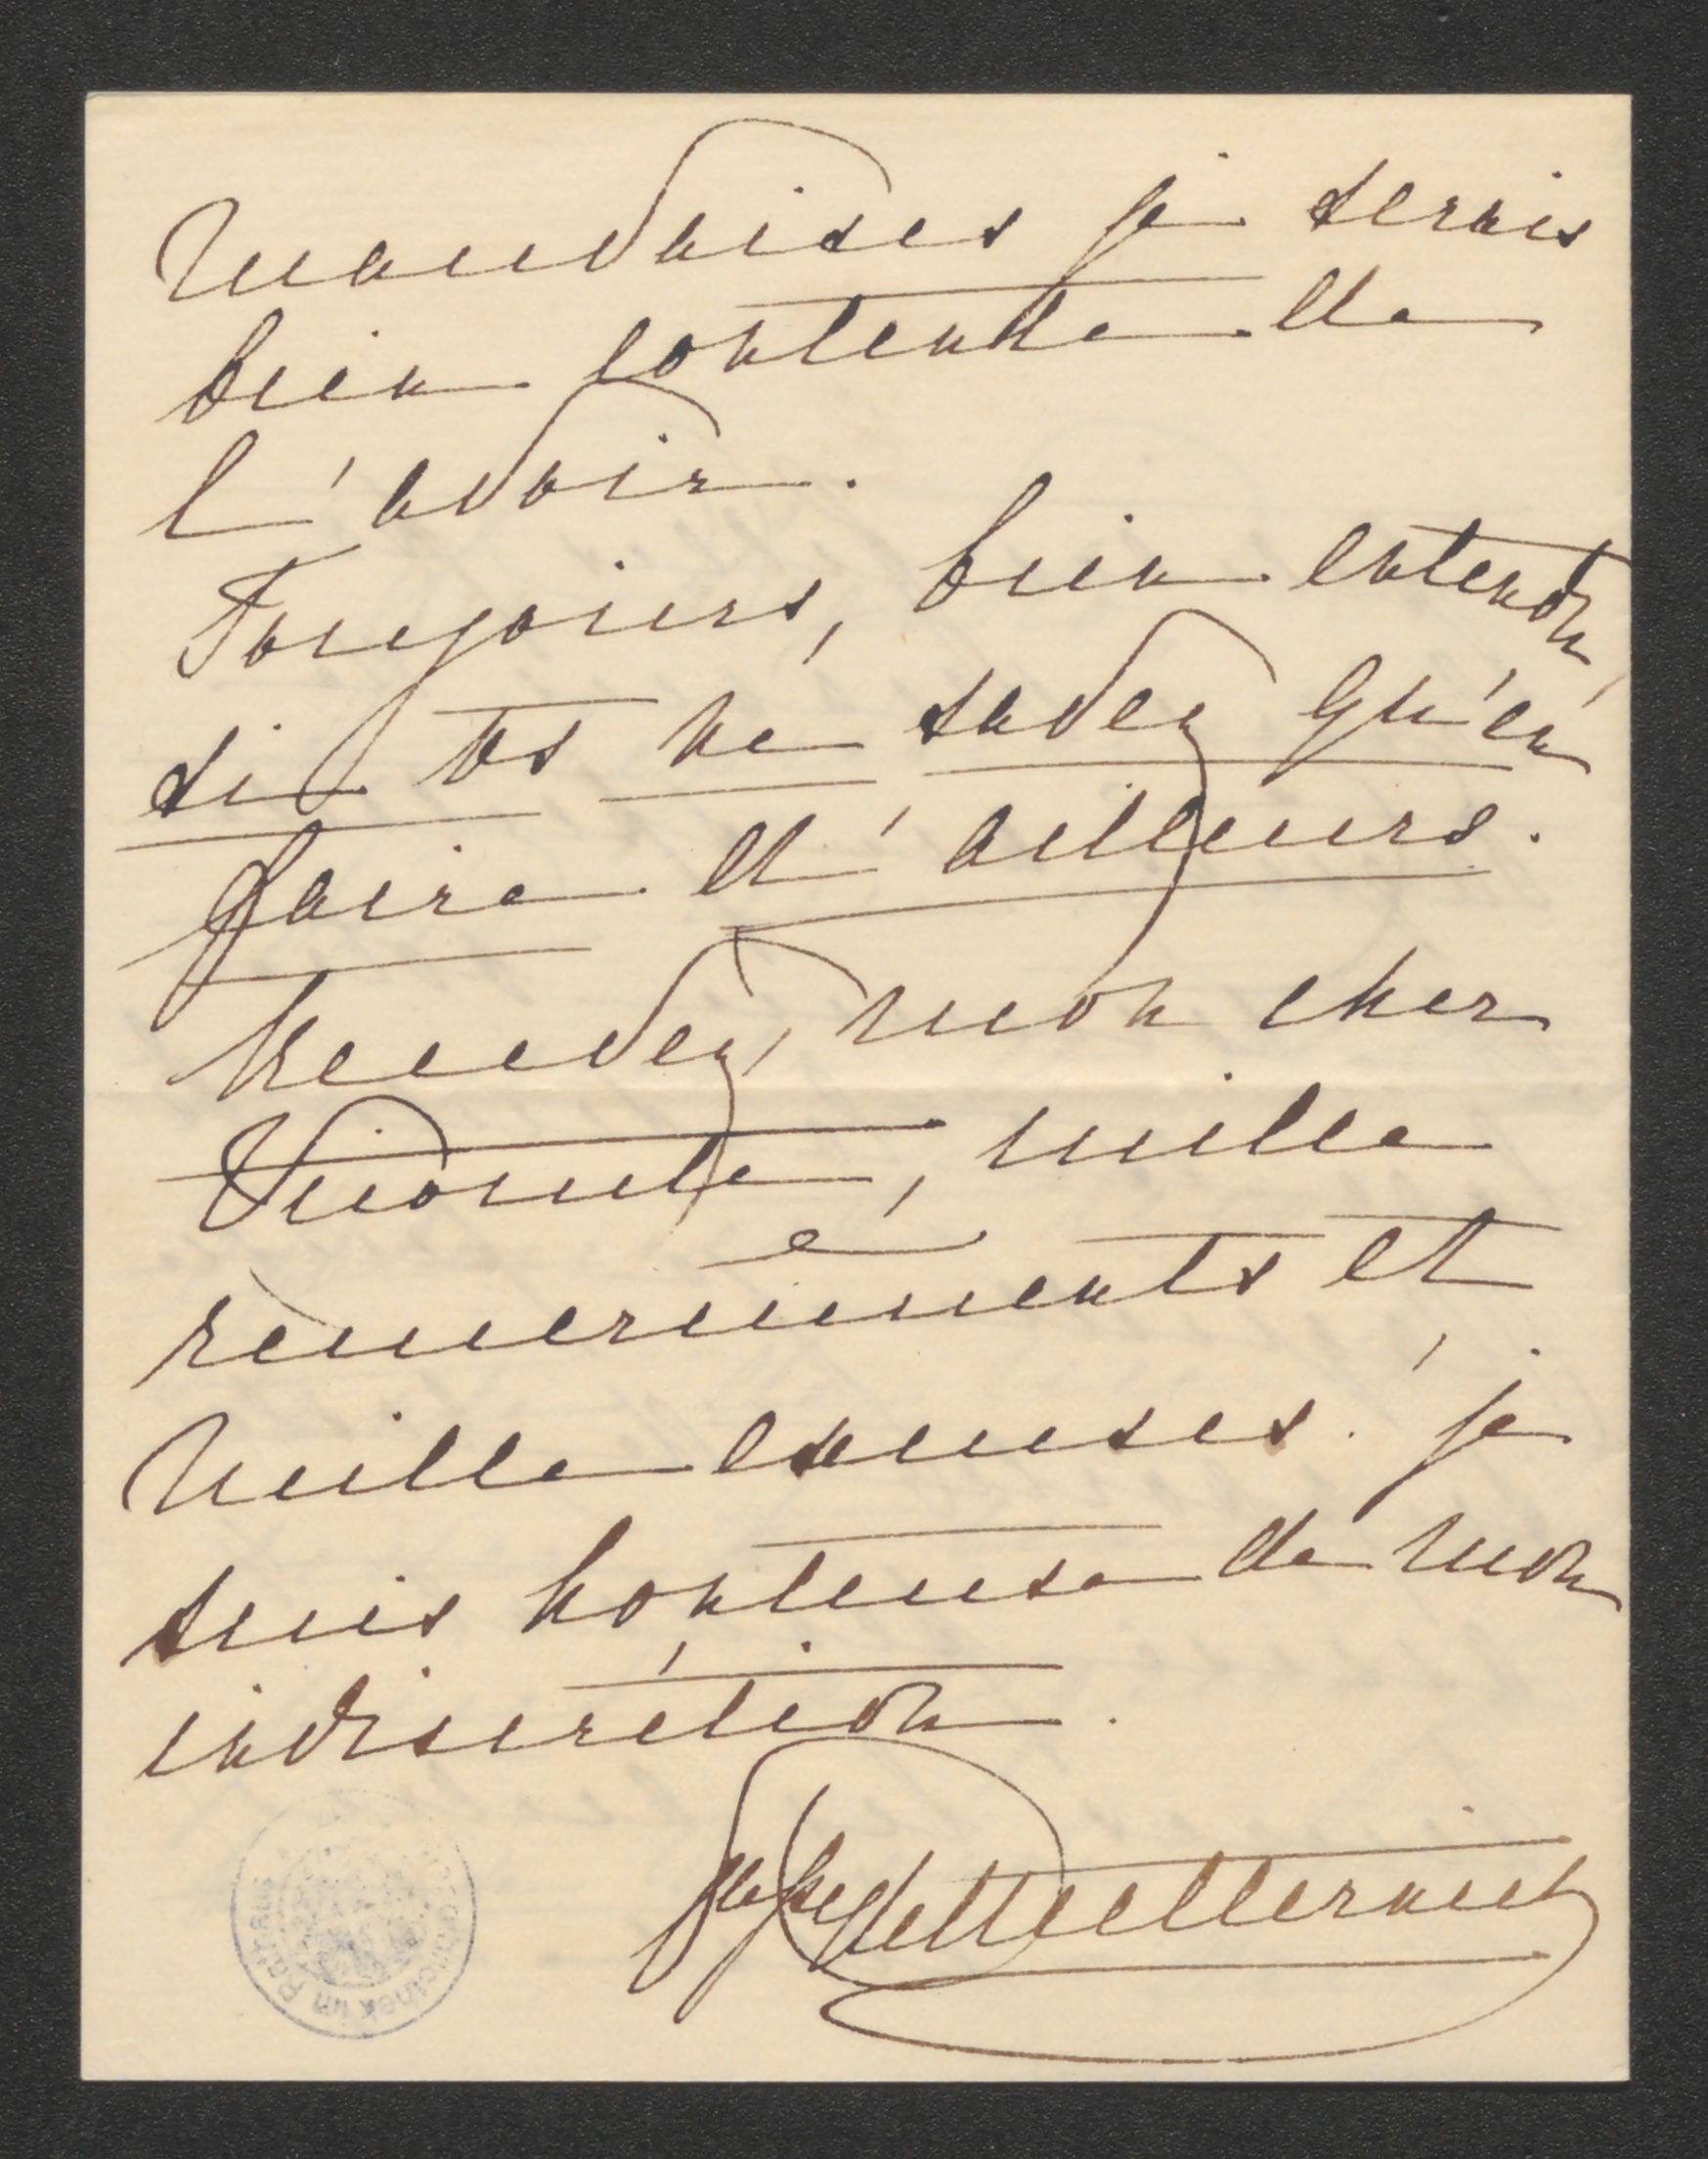 mauvaises je serais
bien contente de
l'avoir.
Toujours, bien entendu,
si vs ne savez qu'en
faire d'ailleurs.
Recevez, mon cher
Vicomte, mille
remerciements et
mille excuses. je
suis honteuse de mon
indiscrétion.
Metternich